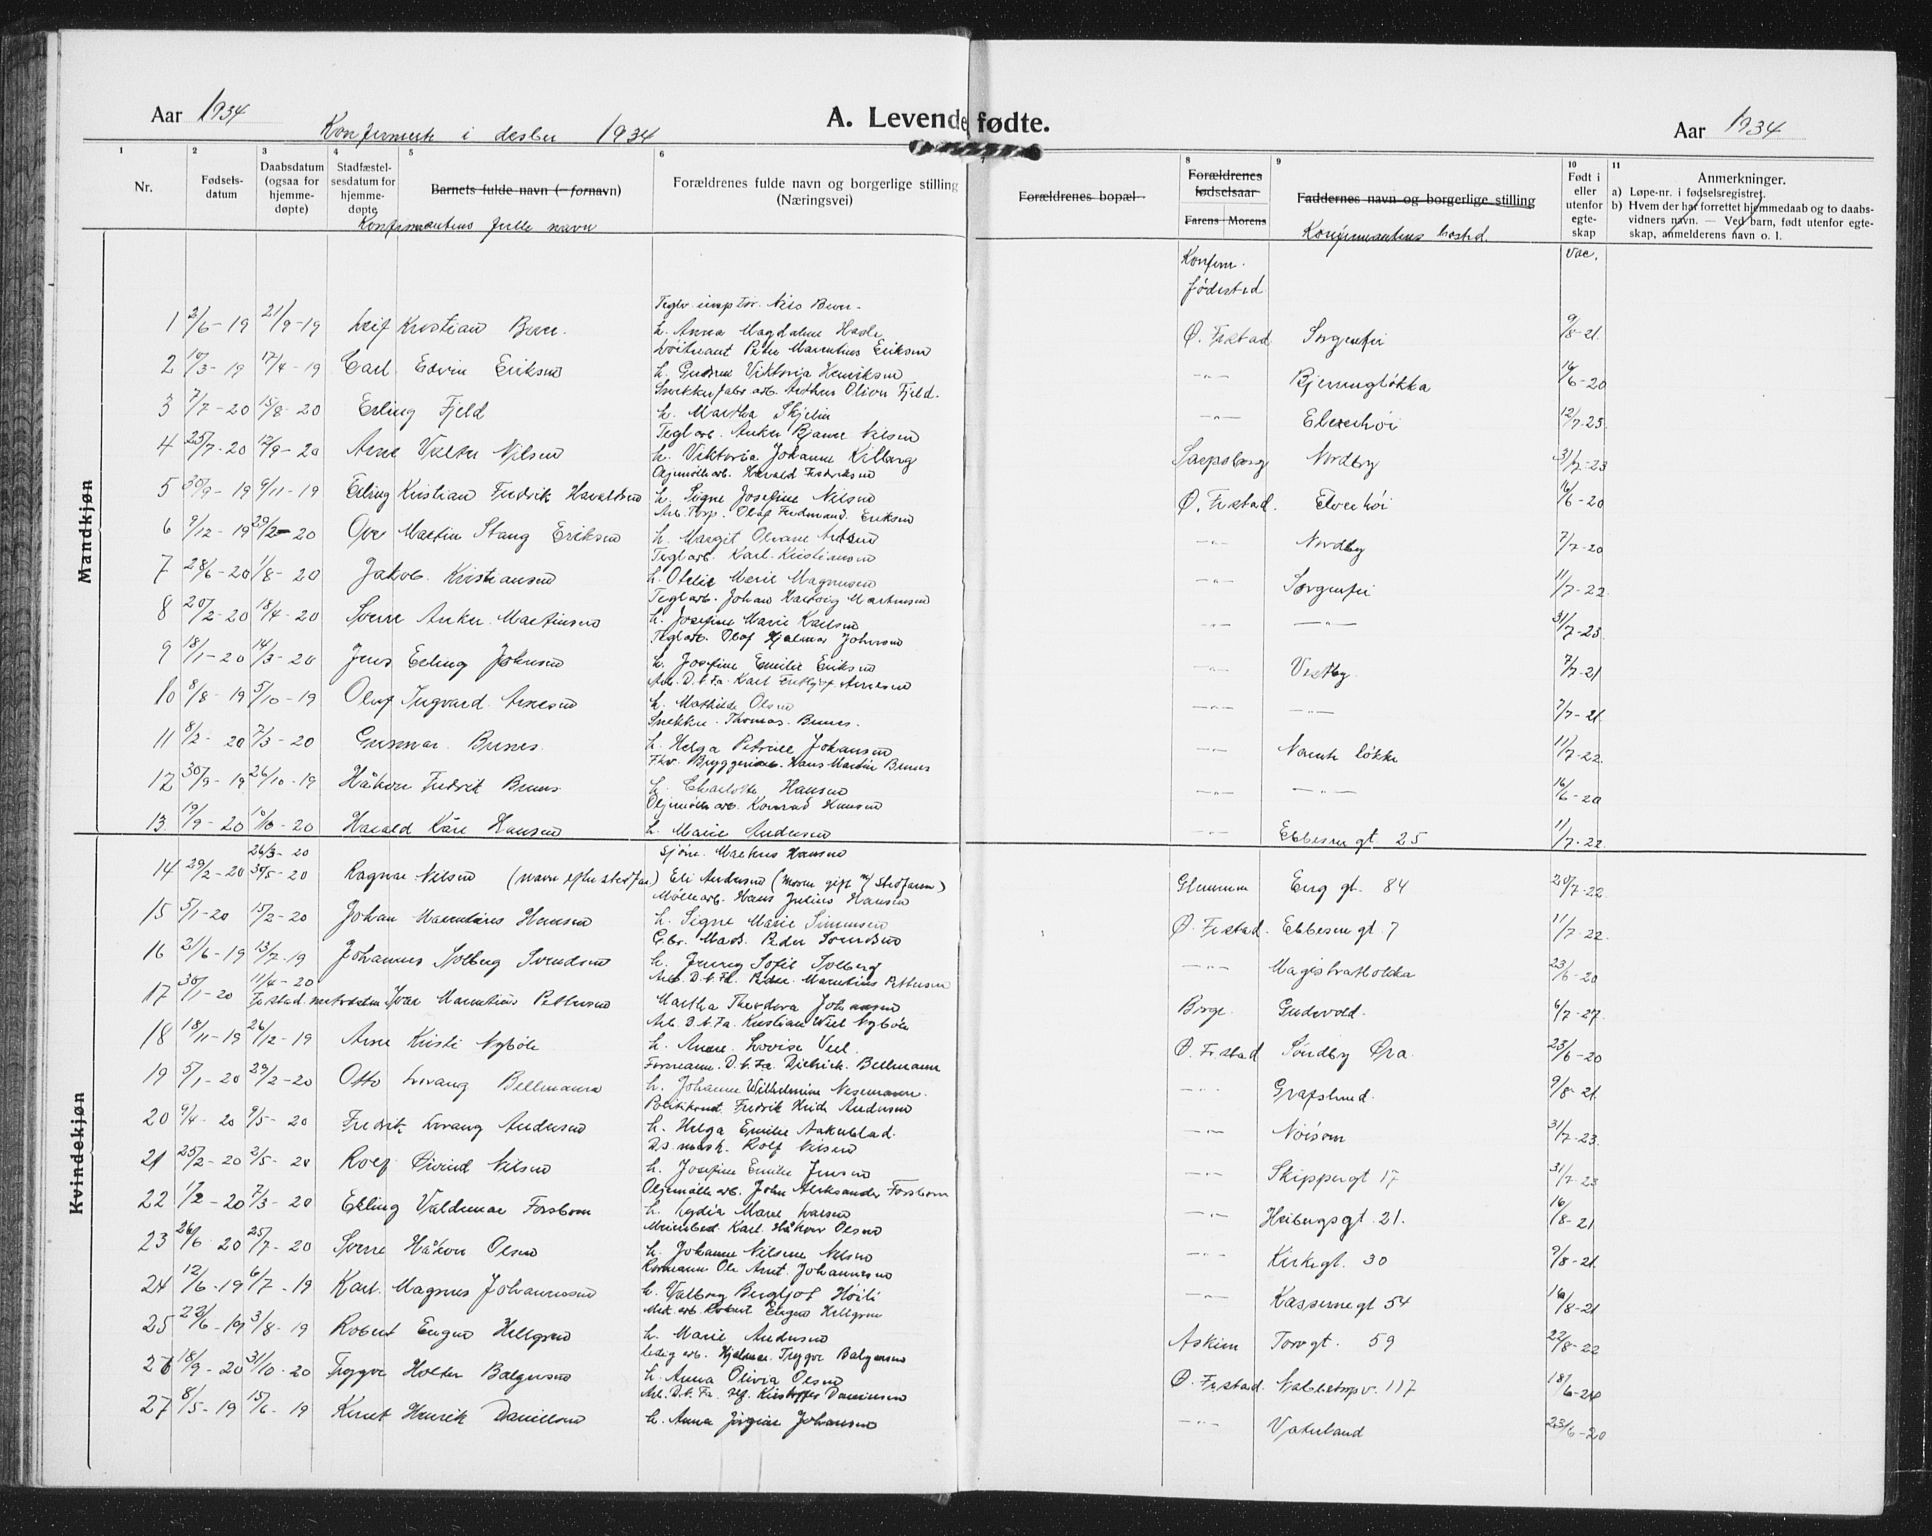 Aar 1934
A. Levendefødte.
Aar 1934
Konfirmerte i desber 1934
1 2 3 4 5 6 8 9 10 11
Nr.
Fødsels-
datum
Daabsdatum
(ogsaa for
hjemme-
døpte)
Stadfæstel-
sesdatum for
hjemme-
døpte
Barnets fulde navn (= fornavn)
Konfirmantens fulle navn
Forældrenes fulde navn og borgerlige stilling
(Næringsvei)
Forældrenes bopæl
Forældrenes
fødselsaar
Farens Morens
Faddernes navn og borgerlige stilling
Konfirmantens bosted.
Født i
eller
utenfor
egte-
skap
Anmerkninger.
a) Løpe-nr. i fødselsregistret.
b) Hvem der har forrettet hjemmedaab og to daabs-
vidners navn. — Ved barn, født utenfor egte-
skap, anmelderens navn o. l.
Konfirm. vac.
fødested
Mandkjøn
Kvindekjøn
1 2/6 - 19 21/9 - 19 Leif Kristian
h. Anna Magdalene Ø. Frstad Sorgenfri 9/8 - 21.
2 10/3 - 19 17/4 - 19 Carl Edvin Eriksen Peter Marentius Eriksen
h. Gudrun Viktoria Henriksen -"- Bjerringløkka 16/6 - 20
3 7/7 - 20 15/8 - 20 Erling Fjeld Arthur Oliver Fjeld.
h. Martha Skjelin -"- Elverhøi 12/7 - 23
4 25/7 - 20 12/9 - 20 Arne Valter Nilsen Teglarb. Anker Bjarne Nilsen
h. Viktoria Johanne Kilberg Sarpsborg Nordby 31/7 - 23
5 30/9 - 19 9/11 - 19 Erling Kristian Fredrik Haraldsen Oljemøllearb. Harald Fredriksen
h. Signe Josefine Nilsen Ø. Frstad. Elverhøi 16/6 - 20
6 9/12 - 19 29/2 - 20 Ove Martin Stang Eriksen Arb. Torp. Olaf Ferdinand Eriksen
h. Margit Oleane -"- Nordby 7/7 - 20
7 28/6 - 20 1/8 - 20 Jakob Kristiansen Teglarb. Karl Kristiansen
h. Otelie Marie Magnusen -"- Sorgenfri 11/7 - 22
8 20/2 - 20 18/4 - 20 Sverre Anker Martinsen Teglarb. Johan Hartvig Martinsen
h. Josefine Marie Karlsen -"- -"- 31/7 - 23
9 18/1 - 20 14/3 - 20 Jens Erling Johnsen Teglarb. Olaf Hjalmar Johnsen
h. Josefine Emilie Eriksen -"- Vestby 7/7 - 21
10 8/8 - 19 5/10 - 19 Oluf Ingvard Arnesen Arb. D.t.Fa. Karl Fritjof Arnesen
h. Mathilde Olsen -"- -"- 7/7 - 21
11 8/2 - 20 7/3 - 20 Gunnar Bunes. Snekker Thomas Bunes.
h. Helga Petrine Johansen -"- løkke 11/7 - 22
12 30/9 - 19 26/10 - 19 Håkon Fredrik Bunes Fhv. Bryggeriarb. Hans Martin Bunes
h. Charlotte Hansen -"- -"- 16/6 - 20
13 19/9 - 20 10/10 - 20 Harald Kåre Hansen Oljemøllearb. Konrad Hansen
h. Marie Andersen -"- Ebbesens gt 25 11/7 - 22
26/3 - 20
14 29/2 - 20 30/5 - 20 Ragnar Nilsen (navn efter stedfar) Sjøm. Markus Hansen
Eli Andersen (moren gift m/ stedfaren) Glemmen Eng gt. 84 20/7 - 22
15 5/1 - 20 15/2 - 20 Johan Marentius Hansen Møllearb. Hans Julius Hansen
h. Signe Marie Simensen Ø. Frstad. Ebbesens gt 7 11/7 - 22
16 21/6 - 19 13/7 - 19 Johannes Solberg Svendsen Peder Svendsen
h. Jenny Sofie Solberg -"- 23/6 - 20
17 30/1 - 20 11/4 - 20 Ivar Marentius Pettersen Arb. D.t.Fa. Peder Marentius Pettersen
Martha Theodora Johansen Borge Gudevold. 6/7 - 27
18 18/11 - 19 26/12 - 19 Arne Kristi Nybøle Arb. D.t.Fa. Kristian Wiel Nybøle
h. Anne Lovise Veel Ø. Frstad Sundby Øra 23/6 - 20
19 5/1 - 20 29/2 - 20 Otto Lorang Bellmann Formann D.t.Fa Dietrick Bellmann
h. Johanne Wilhelmine Nesemann -"- Grafslund. 9/8 - 21
20 9/4 - 20 9/5 - 20 Fredrik Lorang Andersen Politikonst. Fredrik Andersen
h. Helga Emilie Aakerblad. -"- Noisom 31/7 - 23.
21 25/2 - 20 2/5 - 20 Rolf Øivind Nilsen D.s. mask. Rolf Nilsen
h. Josefine Emilie Jensen -"- Skippergt 17 31/7 - 23
22 1/2 - 20 7/3 - 20 Erling Valdemar Forsbom Oljemøllearb. John Aleksander Forsbom
h. Lydia Marie Larsen -"- Heibergsgt. 21. 16/8 - 21
23 26/6 - 20 25/7 - 20 Sverre Håkon Olsen Karl Håkon Olsen
h. Johanne Nilsine Nilsen -"- Kirkegt. 30 9/8 - 21.
24 12/6 - 19 6/7 - 19 Karl Magnus Johannessen Formann Ole Arnt Johannesen
h. Valborg Bergljot Høili -"- Kassernegt 54 16/8 - 21
25 22/6 - 19 3/8 - 19 Robert Eugen Hellgren Mek. arb. Robert Eugen Hellgren
h. Marie Andersen Askim Torvgt. 59 22/8 - 22
26 18/9 - 20 31/10 - 20 Trygve Holter Balgersen ledig arb. Hjalmar Trygve Balgersen
h. Anna Olivia Olsen Ø. Frstad. 117 18/6 - 24
27 8/5 - 19 15/6 - 19 Knut Henrik Danielsen Arb. D.t.Fa. Kristoffer Danielsen
h. Anna Jørgine Johansen -"- Vaterland 23/6 - 20